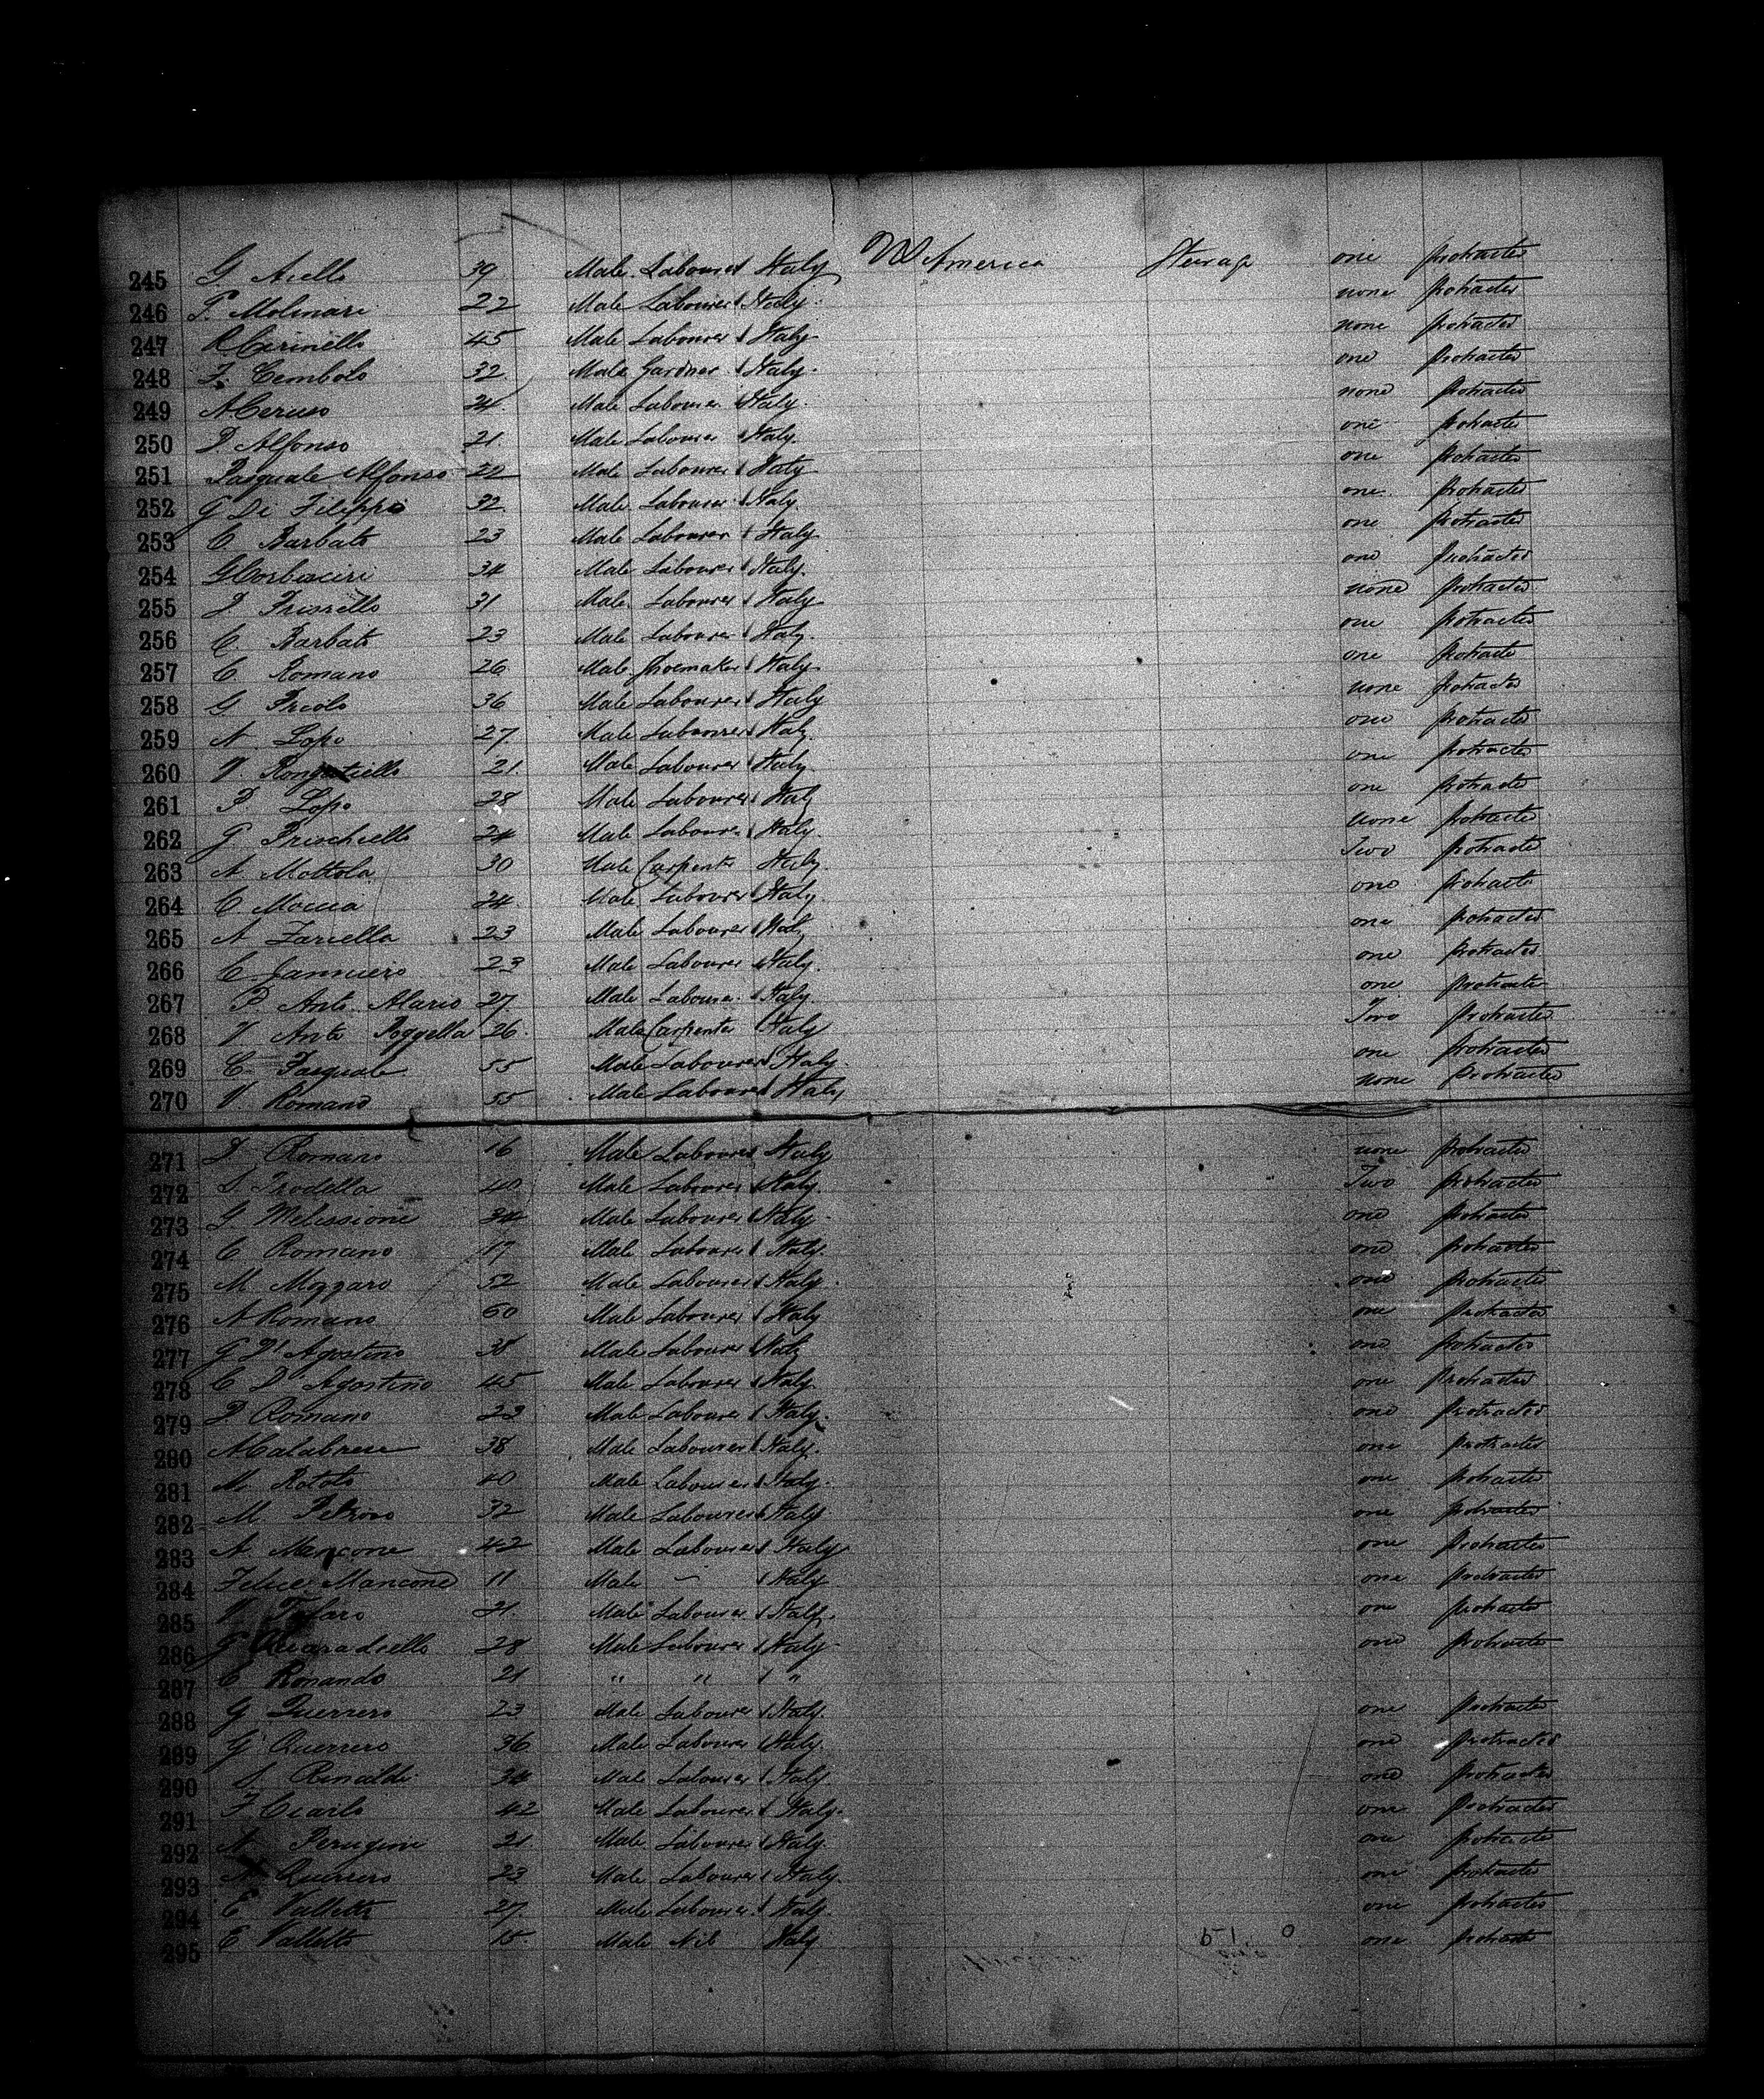 245 G. Aiello 39 Male Labourer Italy N America Steerage one protracted
246 P. Molinari 22 Male Labourer Italy none protracted
247 R Cirinello 45 Male Labourer Italy none protracted
248 F. Cembolo 32 Male Gardner Italy one protracted
249 A Ceruso 24 Male Labourer Italy none protracted
250 D. Alfonso 21 Male Labourer Italy one protracted
251 Pasquale Alfonso 22 Male Labourer Italy one protracted
252 G Di Filippo 32 Male Labourer Italy one protracted
253 C Barbato 23 Male Labourer Italy one protracted
254 G 34 Male Labourer Italy one protracted
255 31 Male Labourer Italy none protracted
256 C. Barbato 23 Male Labourer Italy one protracted
257 C Romano 26 Male Shoemaker Italy one protracted
258 G. Picolo 36 Male Labourer Italy none protracted
259 A. Lopo 27 Male Labourer Italy one protracted
260 V. 21 Male Labourer Italy one protracted
261 P Lopo 28 Male Labourer Italy one protracted
262 G Prischiello 24 Male Labourer Italy none protracted
263 A Mottola 30 Male Carpenter Italy Two protracted
264 C Mocua 24 Male Labourer Italy one protracted
265 A Zariella 23 Male Labourer Italy one protracted
266 C Januiero 23 Male Labourer Italy one protracted
267 P. Anto. Alario 27 Male Labourer Italy one protracted
268 V Anto Poggella 26 Male Carpenter Italy Two protracted
269 C Pasquale 55 Male Labourer Italy one protracted
270 V. Romano 55 Male Labourer Italy none protracted
271 D Romano 16 Male Labourer Italy none protracted
272 Prodella 40 Male Labourer Italy Two protracted
273 G Melissione 34 Male Labourer Italy one protracted
274 C Romano 17 Male Labourer Italy one protracted
275 M Mozzaro 52 Male Labourer Italy one protracted
276 A Romano 60 Male Labourer Italy one protracted
277 G D' Agostino 38 Male Labourer Italy one protracted
278 C D' Agostino 45 Male Labourer Italy one protracted
279 D Romano 23 Male Labourer Italy one protracted
280 A Calabrese 38 Male Labourer Italy one protracted
281 M Rotolo 40 Male Labourer Italy one protracted
282 M Petroso 32 Male Labourer Italy one protracted
283 A Mancone 42 Male Labourer Italy one protracted
284 Felice Mancone 11 Male – Italy one protracted
285 V Tufaro 21 Male Labourer Italy one protracted
286 G 28 Male Labourer Italy one protracted
287 C Ronando 21 " " "
288 G Querrero 23 Male Labourer Italy one protracted
289 G Querrero 36 Male Labourer Italy one protracted
290 S. Rinaldi 34 Male Labourer Italy one protracted
291 F Ciarlo 42 Male Labourer Italy one protracted
292 A Perugini 21 Male Labourer Italy one protracted
293 Querrero 23 Male Labourer Italy one protracted
294 C Valletto 27 Male Labourer Italy one protracted
295 E Valletto 15 Male Nil Italy one protracted
51. 0